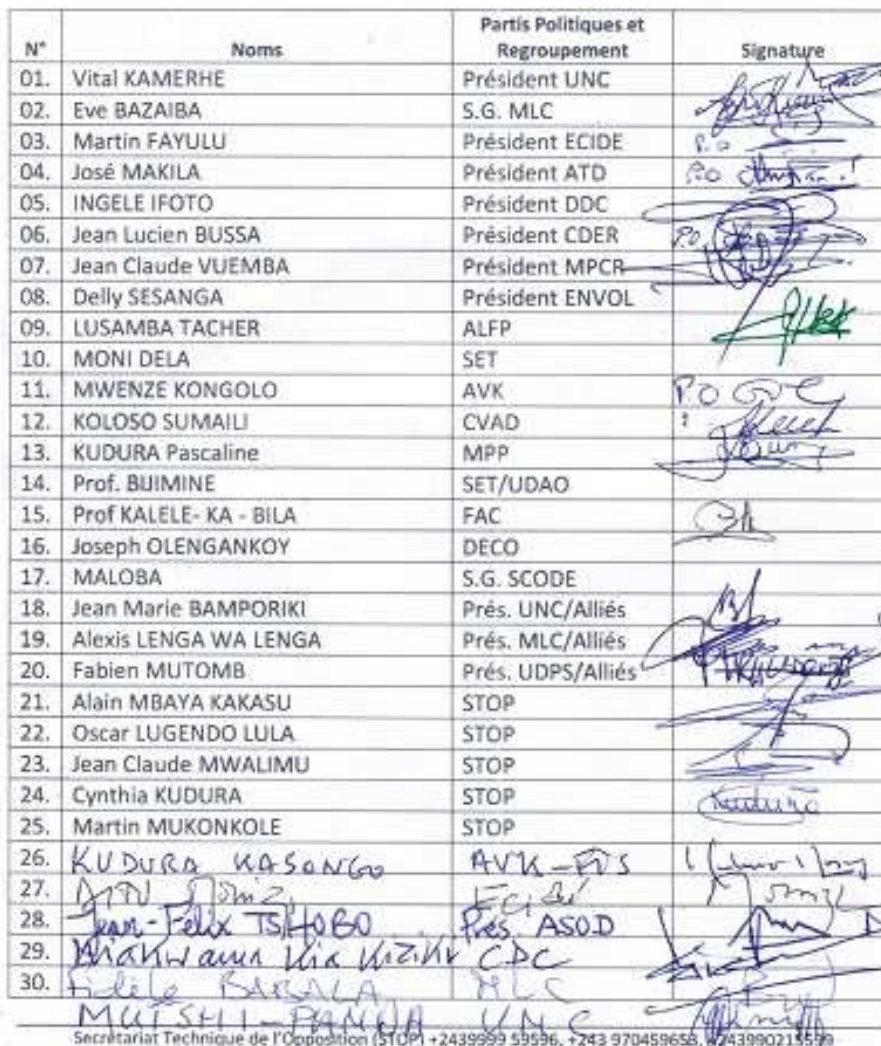 N° Noms Partis Politiques et Regroupement Signature
01. Vital KAMERHE Président UNC
02. Eve BAZAIBA S.G. MLC
03. Martin FAYULU Président ECIDE P.O
04. José MAKILA Président ATD P.O
05. INGELE IFOTO Président DDC
06. Jean Lucien BUSSA Président CDER P.O
07. Jean Claude VUEMBA Président MPCR
08. Delly SESANGA Président ENVOL
09. LUSAMBA TACHER ALFP
10. MONI DELA SET
11. MWENZE KONGOLO AVK P.O
12. KOLOSO SUMAILI CVAD
13. KUDURA Pascaline MPP
14. Prof. BIJIMINE SET/UDAO
15. Prof KALELE- KA - BILA FAC
16. Joseph OLENGANKOY DECO
17. MALOBA S.G. SCODE
18. Jean Marie BAMPORIKI Prés. UNC/Alliés
19. Alexis LENGA WA LENGA Prés. MLC/Alliés
20. Fabien MUTOMB Prés. UDPS/Alliés
21. Alain MBAYA KAKASU STOP
22. Oscar LUGENDO LULA STOP
23. Jean Claude MWALIMU STOP
24. Cynthia KUDURA STOP Kudura
25. Martin MUKONKOLE STOP
26. KUDURA KASONGO AVK
27.
28. Jean-Felix TSHOBO Prés. ASOD
29. Kia CDC
30. Fidèle BABALA MLC
MUTSHI-PANDA UNC
Secrétariat Technique de l'Opposition (STOP) +2439999 59596, +243 970459653, +243990215599